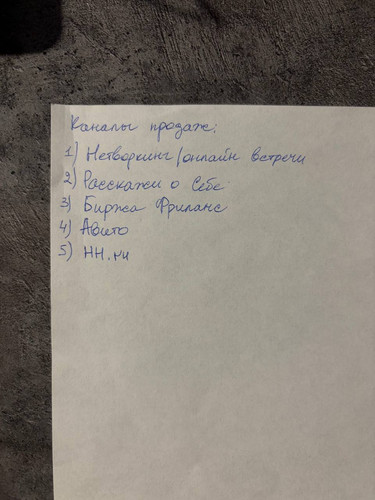 Каналы продаж:
1) Нетворкинг/онлайн встречи
2) Расскажи о Себе
3) Биржа Фриланс
4) Авито
5) HH.ru